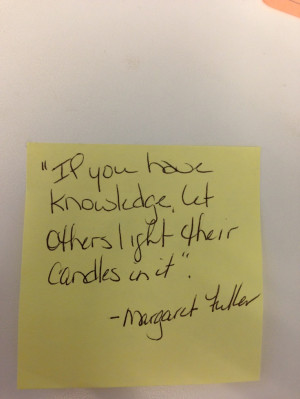 "If you have
Knowledge, let
Others light their
Candles in it".
-Margaret Fuller